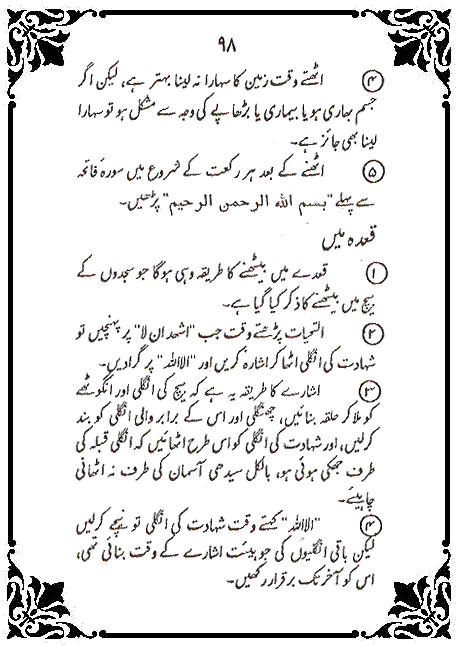 ۹۸
۴ اٹھتے وقت زمین کا سہارا نہ لینا بہتر ہے، لیکن اگر
جسم بھاری ہو یا بیماری یا بڑھاپے کی وجہ سے مشکل ہو تو سہارا
لینا بھی جائز ہے۔
۵ اٹھنے کے بعد ہر رکعت کے شروع میں سورۂ فاتحہ
سے پہلے "بسم اللہ الرحمن الرحیم" پڑھیں۔
قعدہ میں
۱ قعدے میں بیٹھنے کا طریقہ وہی ہوگا جو سجدوں کے
بیچ میں بیٹھنے کا ذکر کیا گیا ہے۔
۲ التحیات پڑھتے وقت جب "اشھد ان لا" پر پہنچیں تو
شہادت کی انگلی اٹھا کر اشارہ کریں اور "الا اللہ" پر گرادیں۔
۳ اشارے کا طریقہ یہ ہے کہ بیچ کی انگلی اور انگوٹھے
کو ملا کر حلقہ بنائیں، چھنگلی اور اس کے برابر والی انگلی کو بند
کرلیں، اور شہادت کی انگلی کو اس طرح اٹھائیں کہ انگلی قبلہ کی
طرف جھکی ہوئی ہو، بالکل سیدھی آسمان کی طرف نہ اٹھانی
چاہیئے۔
۴ "الا اللہ" کہتے وقت شہادت کی انگلی تو نیچے کرلیں
لیکن باقی انگلیوں کی جو ہیئت اشارے کے وقت بنائی تھی،
اس کو آخر تک برقرار رکھیں۔